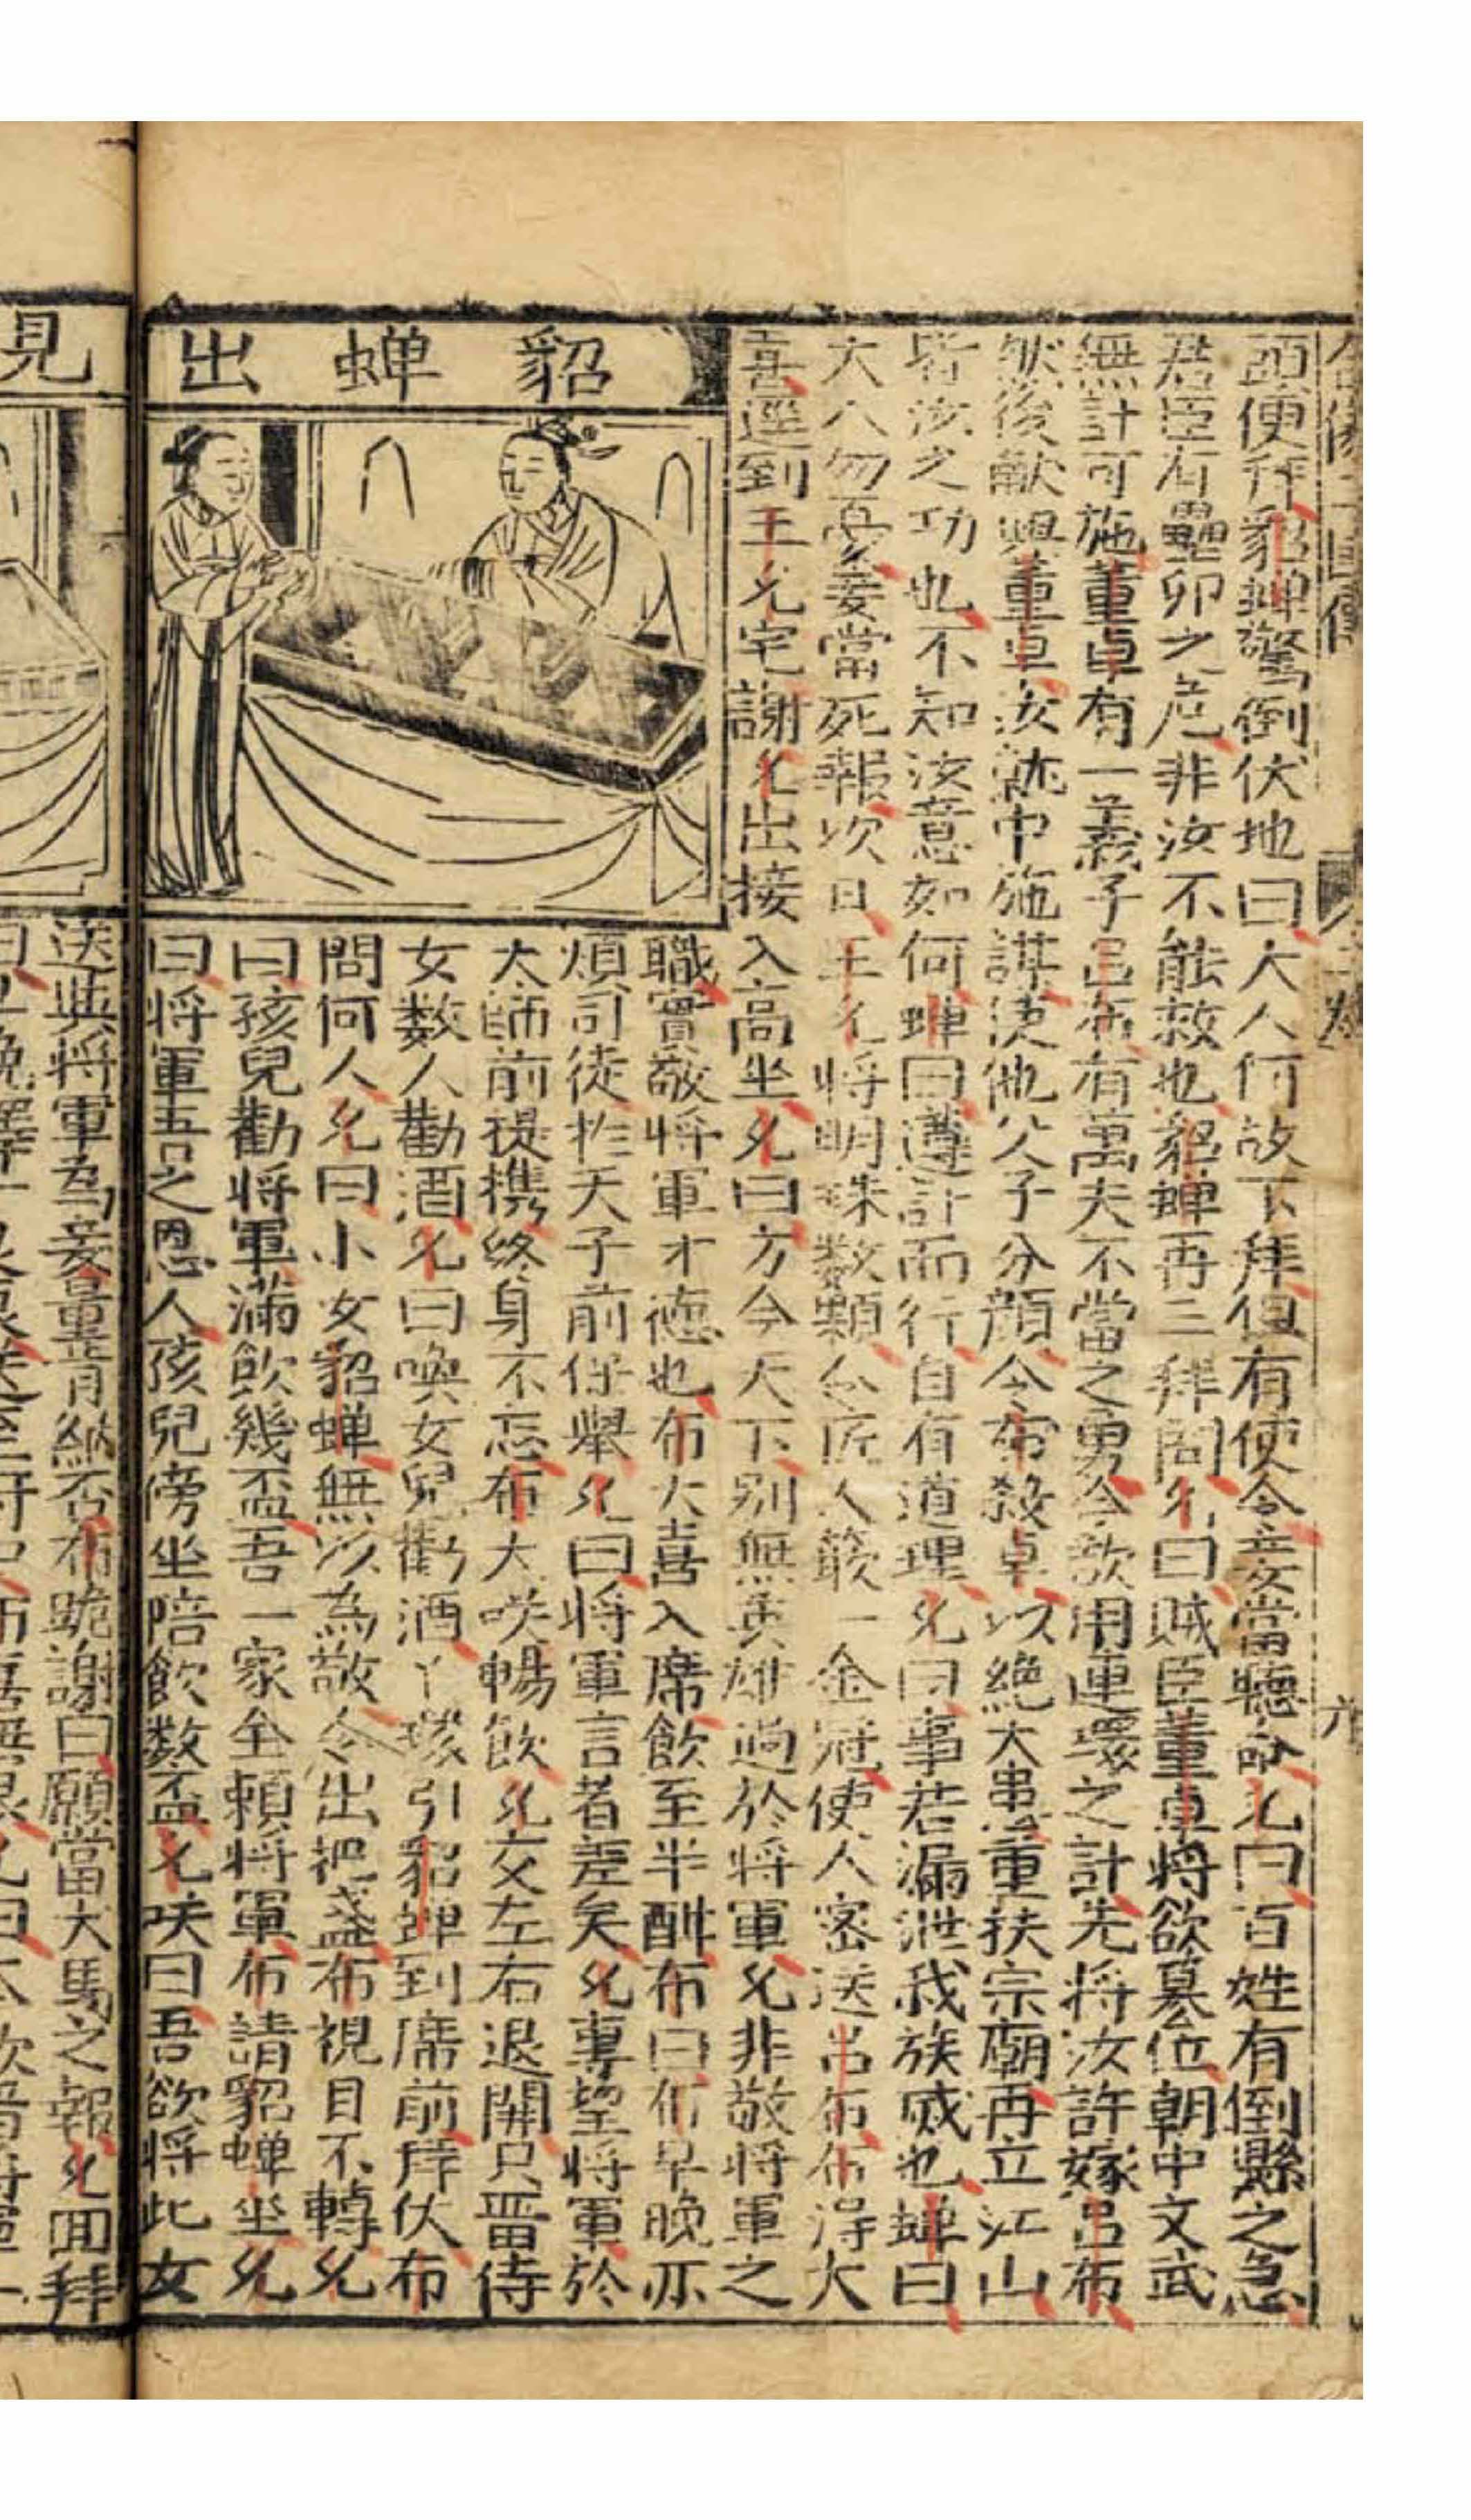 頭便拜貂蟬驚倒伏地曰大人何故下拜但有使令妾當聽命允曰百姓有倒懸之急
君臣有壘卵之危非汝不能救也貂蟬再三拜問允曰賊臣董卓将欲篡位朝中文武
無計可施董卓有一義子呂布有萬夫不當之勇今欲用連環之計先将汝許嫁呂布
然後献與董卓汝就中施謀使他父子分顔令布殺卓以絶大患重扶宗廟再立江山
皆汝之功也不知汝意如何蟬曰遵計而行自有道理允曰事若漏泄我族滅也蟬曰
大人勿憂妾當死報次日王允将明珠数顆令匠人簌一金冠使人密送呂布布淂大
喜逕到王允宅謝允出接入高坐允曰方今天下别無英雄過於将軍允非敬将軍之
職實敬将軍才德也布大喜入席飲至半酣布曰布早晚亦
煩司徒扵天子前保舉允曰将軍言者差矣允専望将軍於
太師前提携終身不忘布大咲暢飲允交左右退開只畱侍
女数人勸酒允曰喚女兒勸酒丫鬟引貂蟬到席前拜伏布
問何人允曰小女貂蟬無以為敬令出把盞布視目不轉允
曰孩兒勸将軍滿飲幾盃吾一家全頼将軍布請貂蟬坐允
曰将軍吾之恩人孩兒傍坐陪飲数盃允咲曰吾欲将此女
貂蟬出
送與将軍為妾量肯納否布跪謝曰願當犬馬之報允囬拜
見